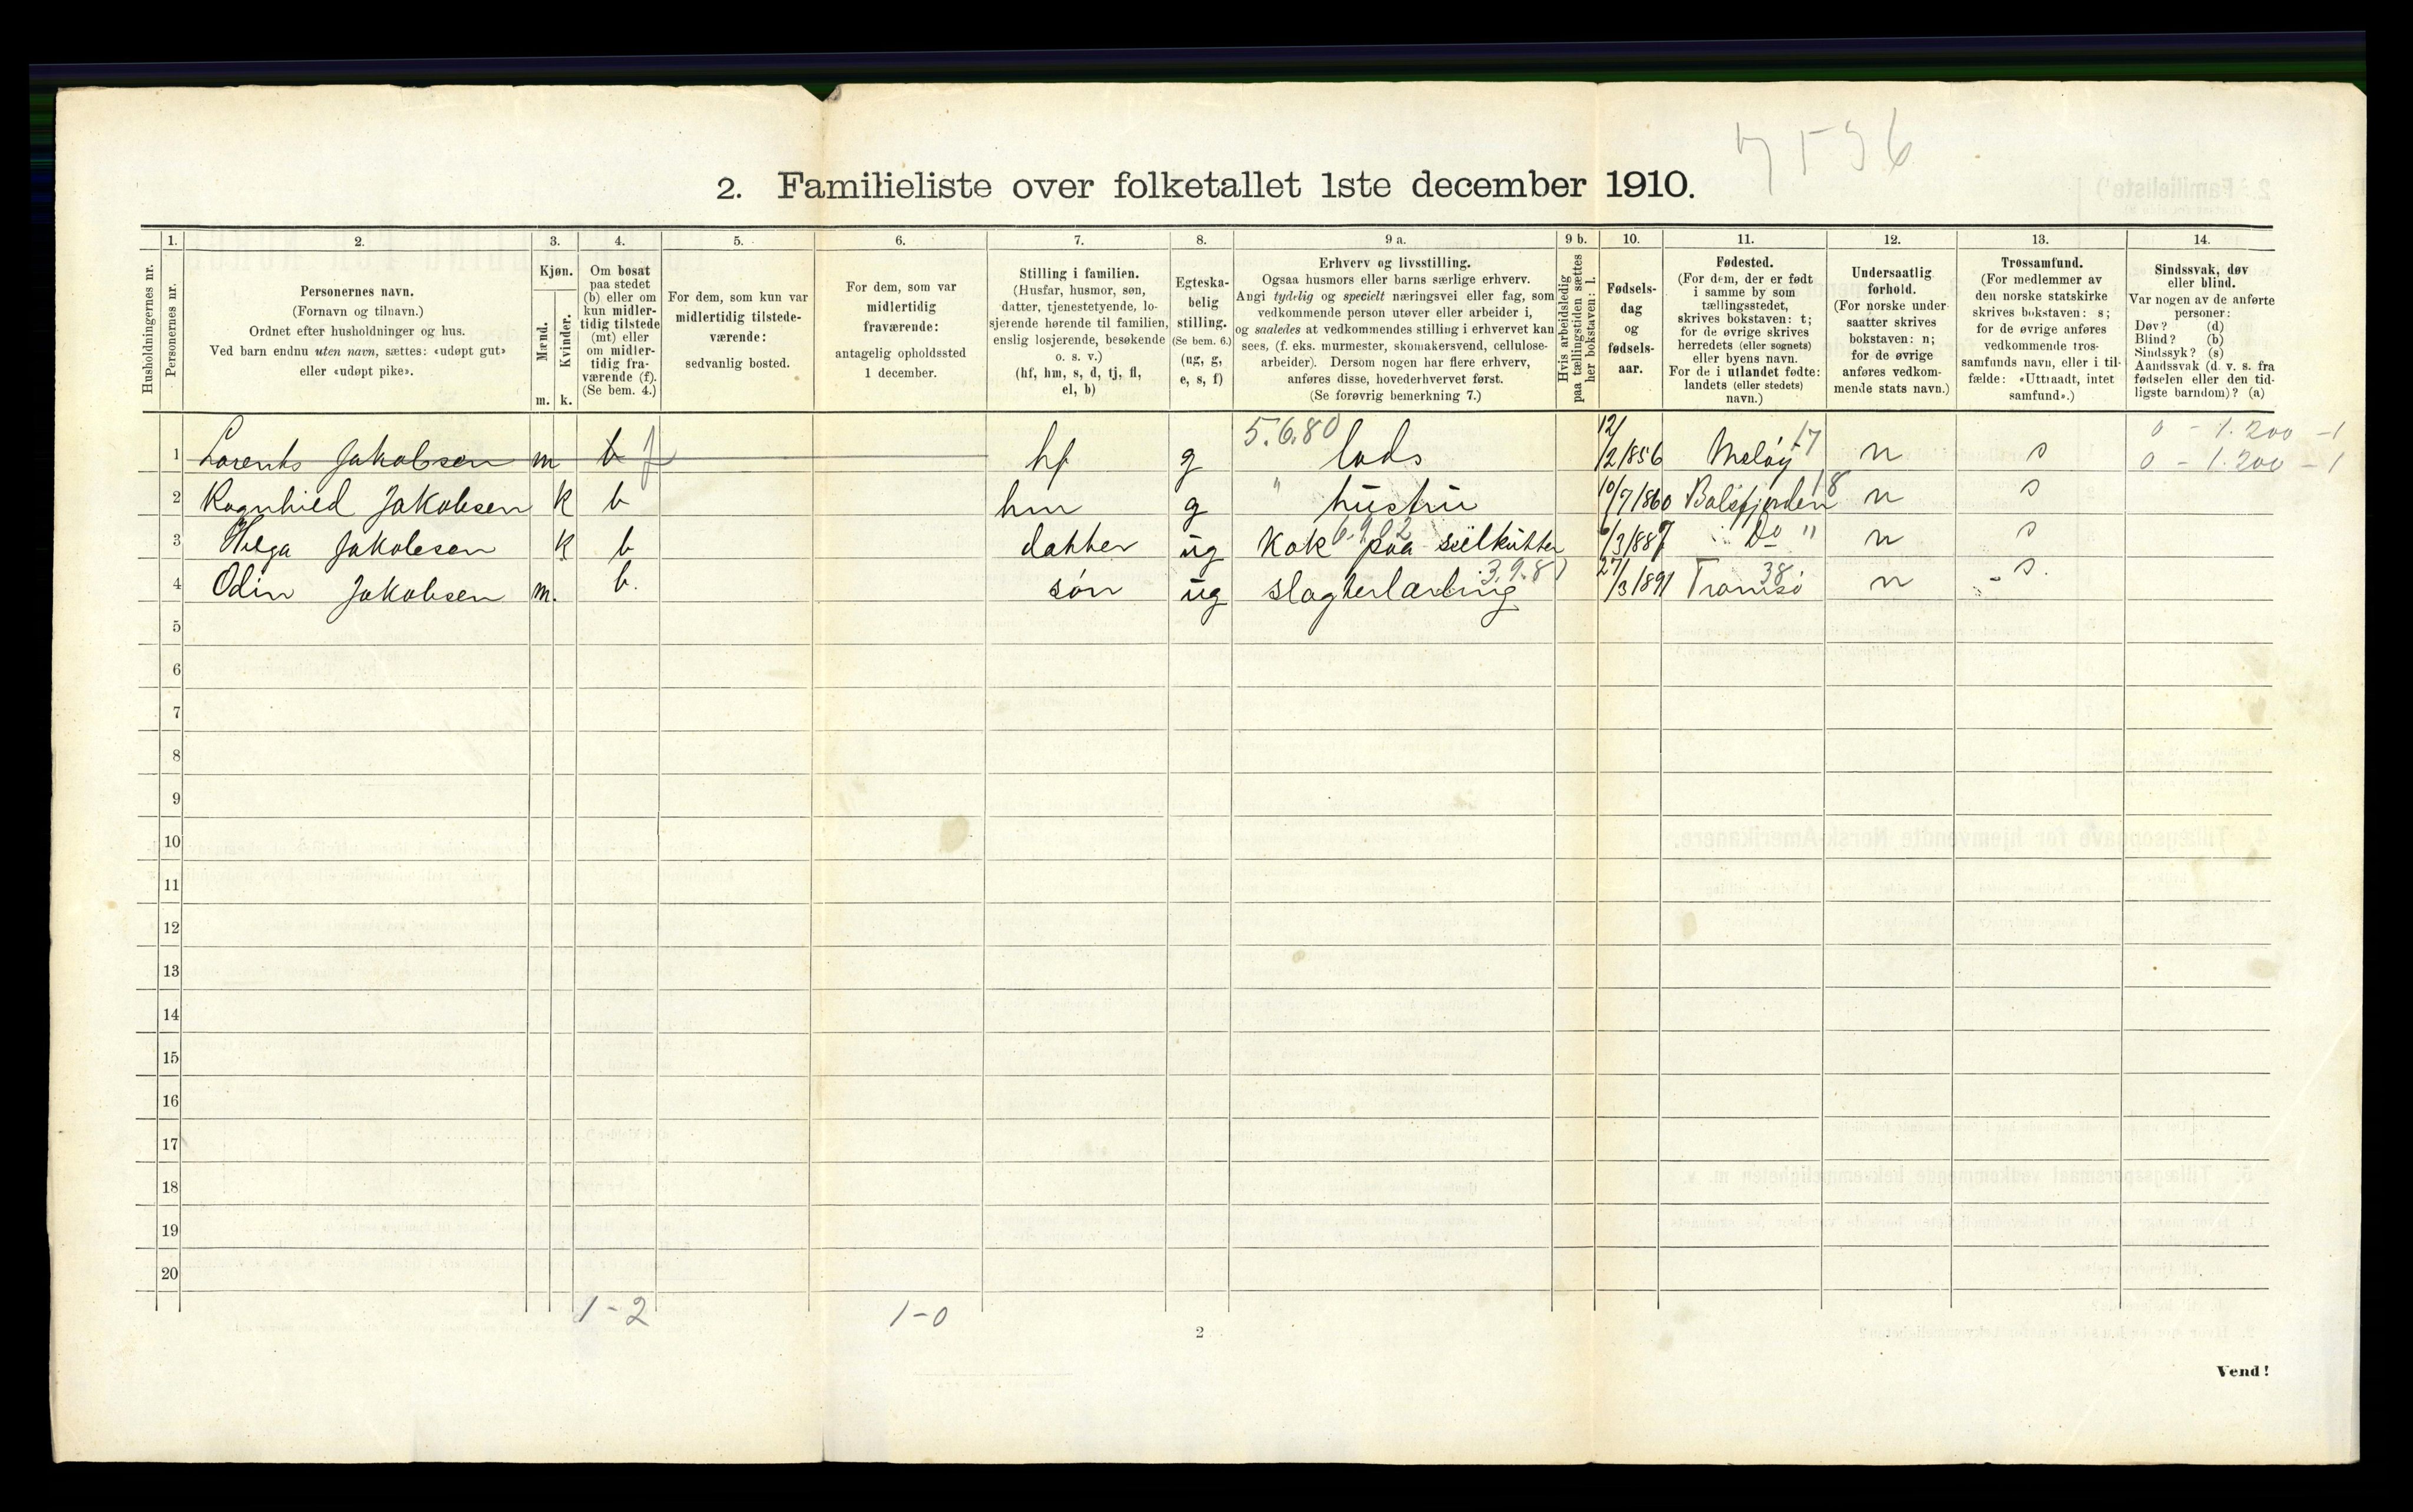 7536
2. Familieliste over folketallet 1ste december 1910.
Husholdningernes nr.
1.
Personernes nr.
2.
Personernes navn.
(Fornavn og tilnavn.)
Ordnet efter husholdninger og hus.
Ved barn endnu uten navn, sættes: «udøpt gut»
eller «udøpt pike».
3.
Kjøn.
Mænd.
Kvinder.
m. k.
4.
Om bosat
paa stedet
(b) eller om
kun midler-
tidig tilstede
(mt) eller
om midler-
tidig fra-
værende (f).
(Se bem. 4.)
5.
For dem, som kun var
midlertidig tilstede-
værende:
sedvanlig bosted.
6.
For dem, som var
midlertidig
fraværende:
antagelig opholdssted
1 december.
7.
Stilling i familien.
(Husfar, husmor, søn,
datter, tjenestetyende, lo-
sjerende hørende til familien,
enslig losjerende, besøkende
o. s. v.)
(hf, hm, s, d, tj, fl,
el, b)
8.
Egteska-
belig
stilling.
(Se bem. 6.)
(ug, g,
e, s, f)
9 a.
Erhverv og livsstilling.
Ogsaa husmors eller barns særlige erhverv.
Angi tydelig og specielt næringsvei eller fag, som
vedkommende person utøver eller arbeider i,
og saaledes at vedkommendes stilling i erhvervet kan
sees, (f. eks. murmester, skomakersvend, cellulose-
arbeider). Dersom nogen har flere erhverv,
anføres disse, hovederhvervet først.
(Se forøvrig bemerkning 7.)
9 b.
Hvis arbeidsledig
paa tællingstiden sættes
her bokstaven: l.
10.
Fødsels-
dag
og
fødsels-
aar.
11.
Fødested.
(For dem, der er født
i samme by som
tællingsstedet,
skrives bokstaven: t;
for de øvrige skrives
herredets (eller sognets)
eller byens navn.
For de i utlandet fødte:
landets (eller stedets)
navn.)
12.
Undersaatlig
forhold.
(For norske under-
saatter skrives
bokstaven: n;
for de øvrige
anføres vedkom-
mende stats navn.)
13.
Trossamfund.
(For medlemmer av
den norske statskirke
skrives bokstaven: s;
for de øvrige anføres
vedkommende tros-
samfunds navn, eller i til-
fælde: «Uttraadt, intet
samfund».)
14.
Sindssvak, døv
eller blind.
Var nogen av de anførte
personer:
Døv? (d)
Blind? (b)
Sindssyk? (s)
Aandssvak (d. v. s. fra
fødselen eller den tid-
ligste barndom)? (a)
5.6.80 17 0 - 1.200 - 1
1 Lorents Jakobsen m b f hf g lods 12/2 1856 Meløy n s 0 - 1.200 - 1
18
2 Ragnhild Jakobsen k b hm g " hustru 10/7 1860 Balsfjorden n s
6.9.02
3 Helga Jakobsen k b datter ug Kok paa seilkutter 6/3 1887 Do " n s
3.9.8 38
4 Odin Jakobsen m. b. søn ug slagterlærling 27/3 1891 Tromsø n - s.
5
6
7
8
9
10
11
12
13
14
15
16
17
18
19
20
1-2 1-0
2
Vend!